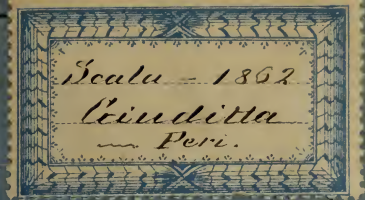 Scala - 1862
Giuditta
Peri.